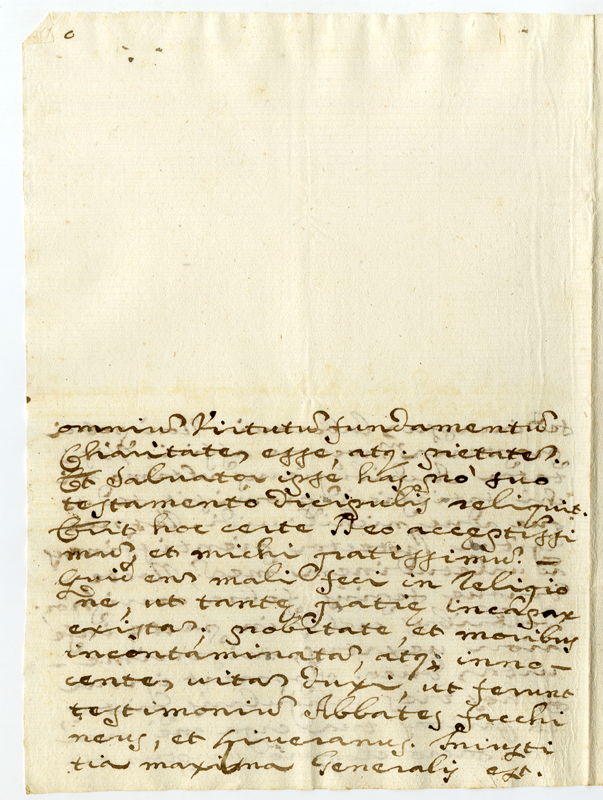 omniũ Virtutũ fundamentũ
Charitatẽ esse, atq; pietatẽ.
Et Salvator ipse has nõ suo
testamento dicipulis reliquit.
Erit hoc certe Deo acceptissi
mũ et michi gratissimũ. –
Quid enĩ mali feci in Religio
ne, ut tantę gratię incapax
existã; nobilitate, et moribus
incontaminatã, atq; inno-
centẽ vitã duxi, ut ferunt
testimoniũ Abbates Facchi
neus, et Giveranus. Iniusti
tia maxima Generalis est.